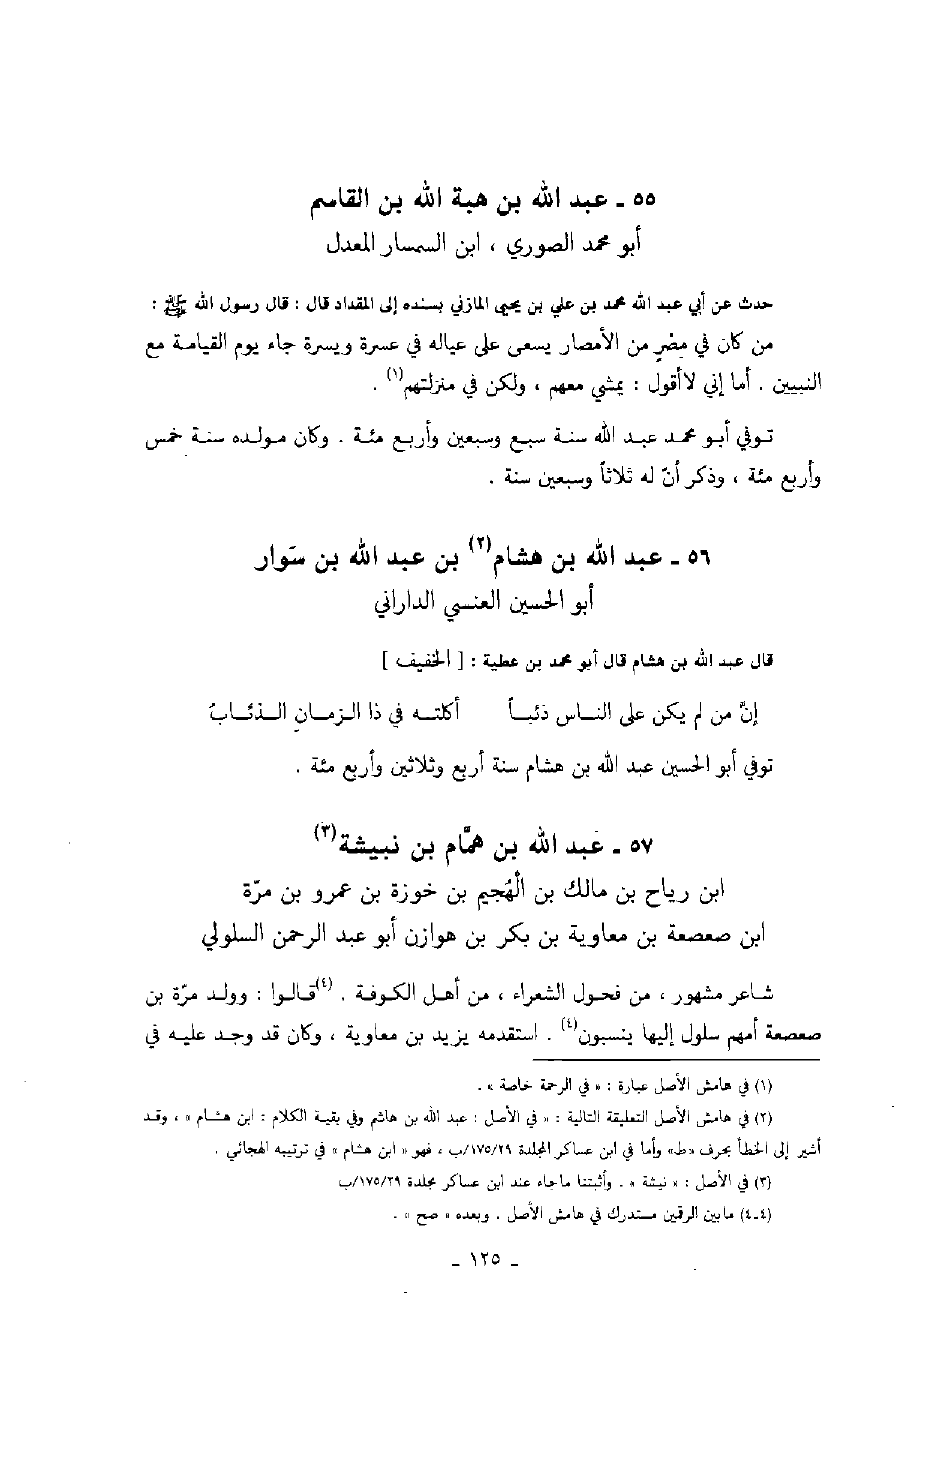 ٥٥ ـ عبد الله بن هبة الله بن القاسم
أبو محمد الصوري ، ابن السمسار المعدل
حدث عن أبي عبد الله محمد بن علي بن يحيى المازني بسنده إلى المقداد قال : قال رسول الله ﷺ :
من كان في مصْرٍ من الأمصار يسعى على عياله في عسرة ويسرة جاء يوم القيامة مع
النبيين . أما إني لاأقول : يمشي معهم ، ولكن في منزلتهم(١) .
توفي أبو محمد عبد الله سنة سبع وسبعين وأربع مئة . وكان مولده سنة خمس
وأربع مئة ، وذكر أنّ له ثلاثاً وسبعين سنة .
٥٦ ـ عبد الله بن هشام(٢) بن عبد الله بن سَوار
أبو الحسين العنسي الداراني
قال عبد الله بن هشام قال أبو محمد بن عطية : [ الخفيف ]
إنّ من لم يكن على الناس ذئباً أكلته في ذا الزمانِ الذئابُ
توفي أبو الحسين عبد الله بن هشام سنة أربع وثلاثين وأربع مئة .
٥٧ ـ عبد الله بن همّام بن نبيشة(٣)
ابن رياح بن مالك بن الْهُجيم بن خوزة بن عمرو بن مرّة
ابن صعصعة بن معاوية بن بكر بن هوازن أبو عبد الرحمن السلولي
شاعر مشهور ، من فحول الشعراء ، من أهل الكوفة . (٤)قالوا : وولد مرّة بن
صعصعة أمهم سلول إليها ينسبون(٤) . استقدمه يزيد بن معاوية ، وكان قد وجد عليه في
(١) في هامش الأصل عبارة : « في الرحمة خاصة » .
(٢) في هامش الأصل التعليقة التالية : « في الأصل : عبد الله بن هاشم وفي بقية الكلام : ابن هشام » ، وقد
أشير إلى الخطأ بحرف «ط» وأما في ابن عساكر المجلدة ١٧٥/٢٩/ب ، فهو « ابن هشام » في ترتيبه الهجائي .
(٣) في الأصل : « نيشة » . وأثبتنا ماجاء عند ابن عساكر مجلدة ١٧٥/٢٩/ب
(٤ـ٤) مابين الرقمين مستدرك في هامش الأصل . وبعده « صح » .
ـ ١٢٥ ـ